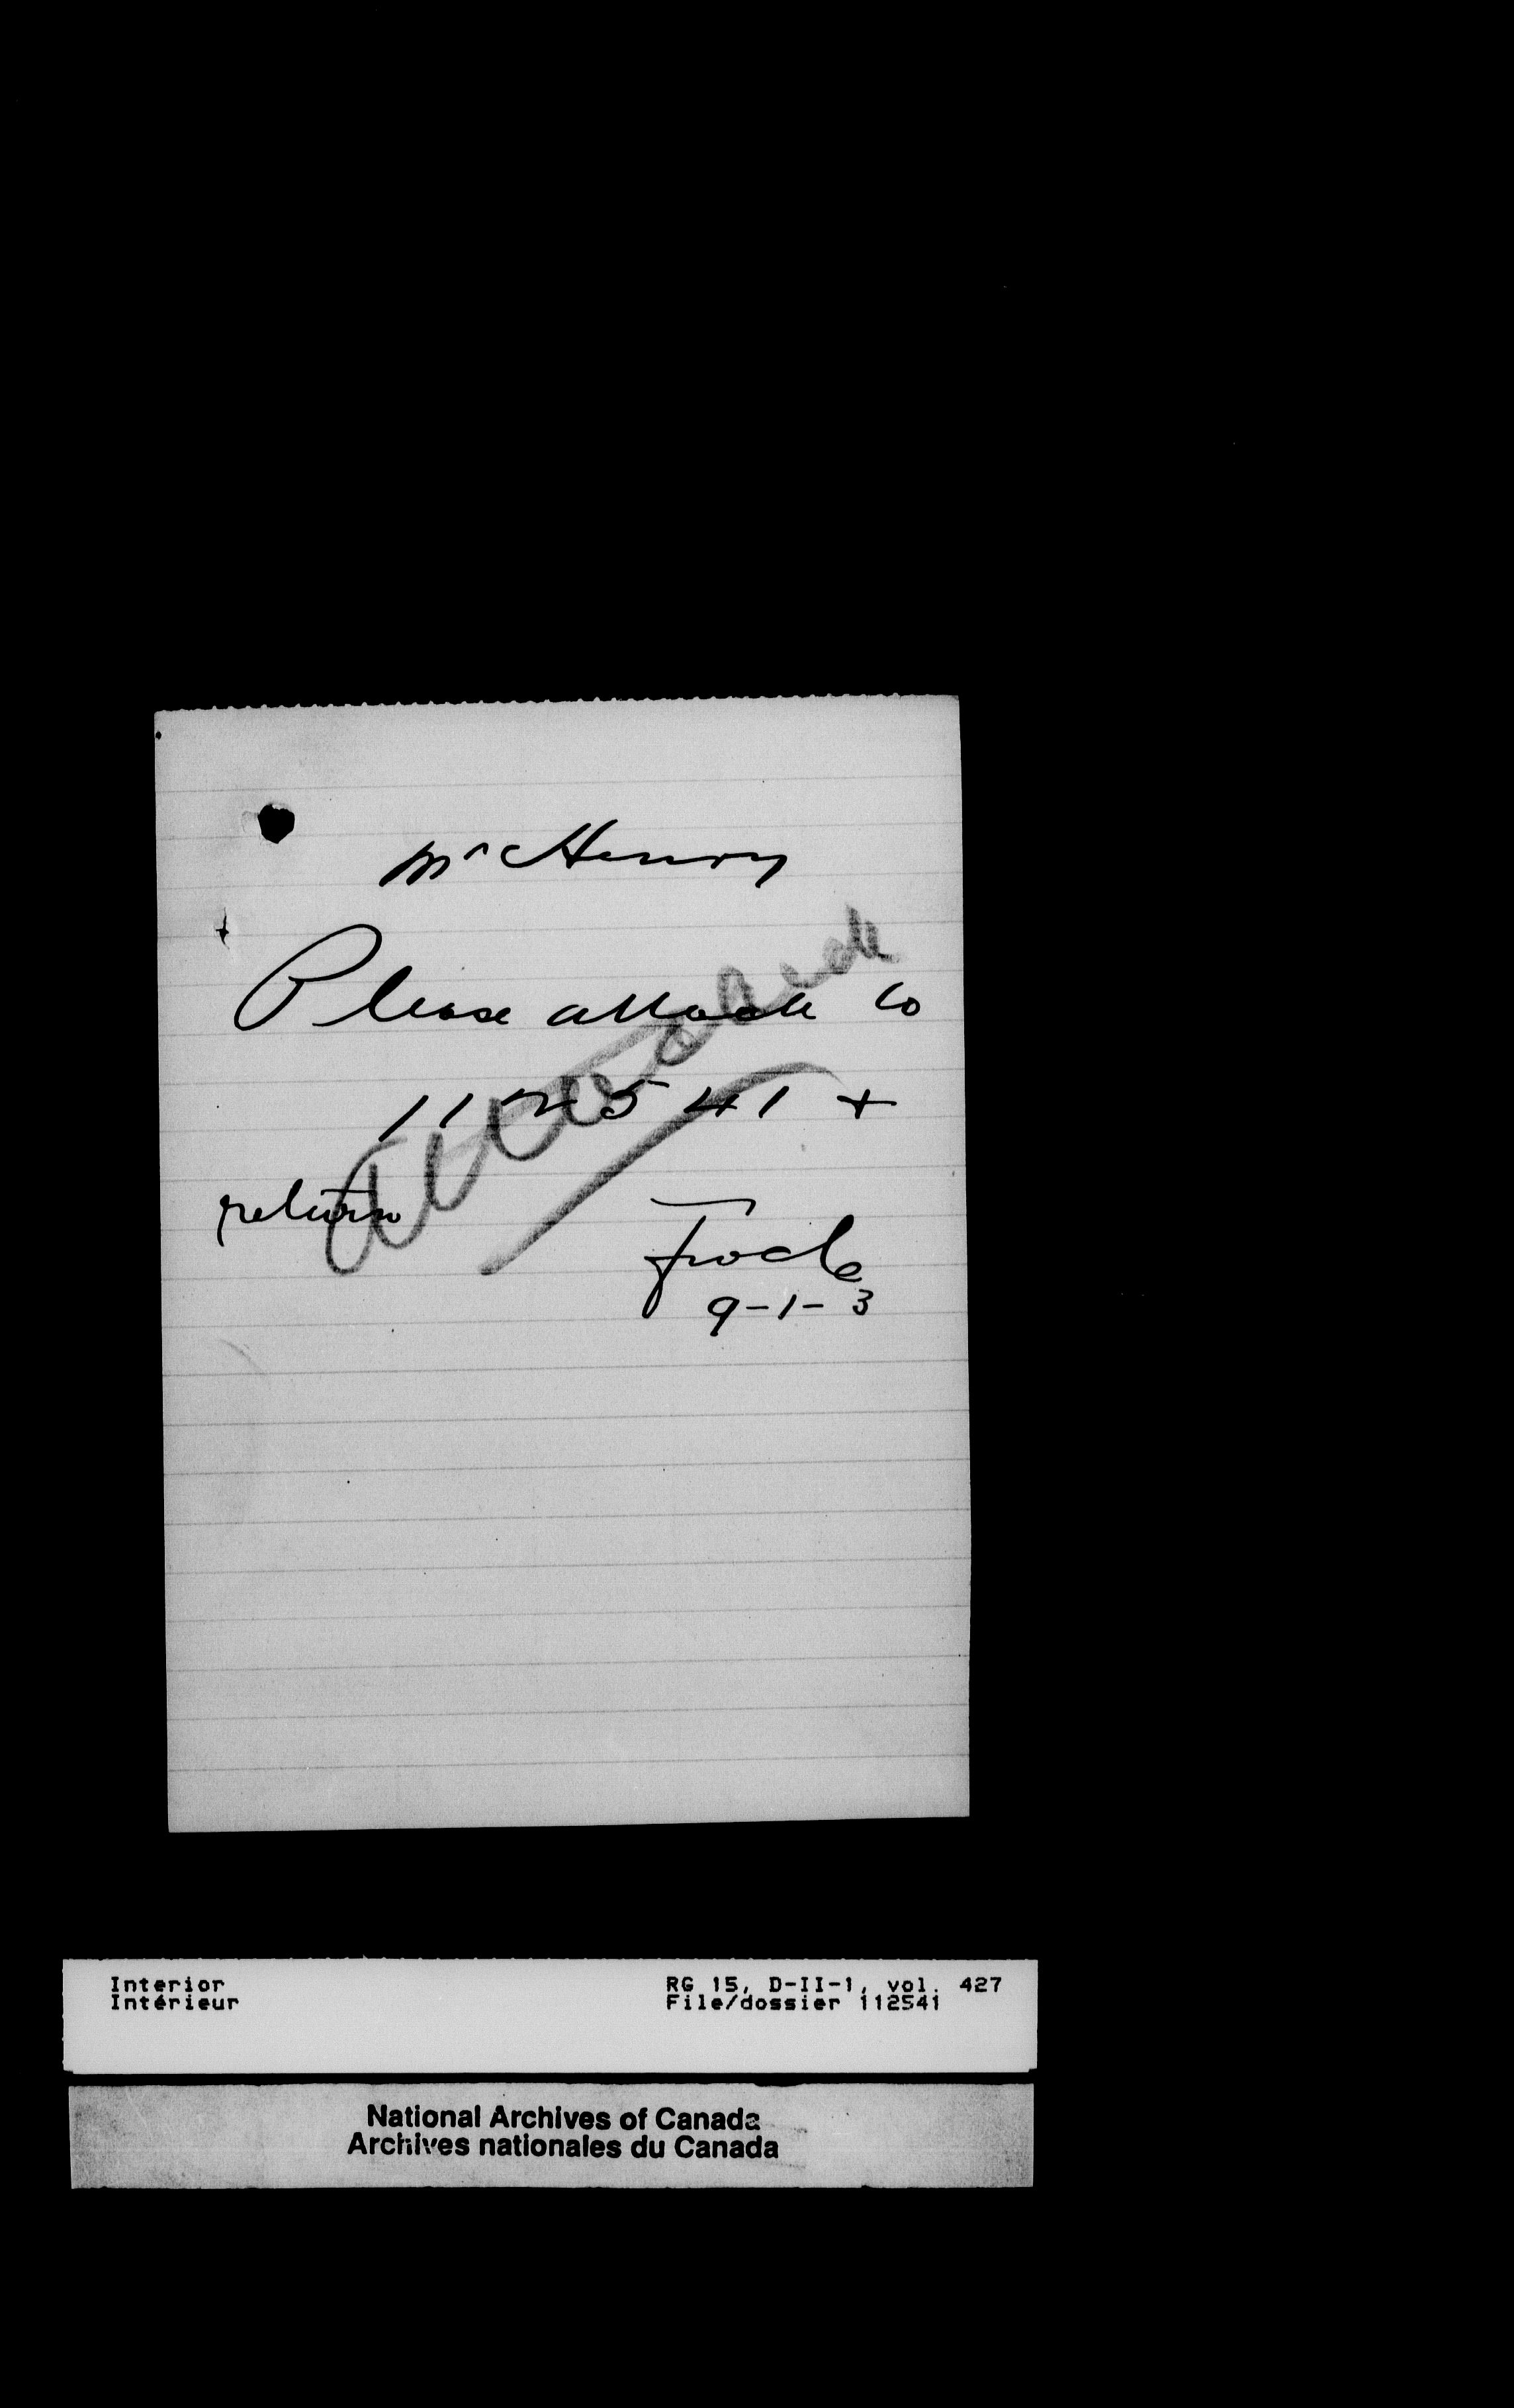 Mr Henry
Please attach to
112541 +
return
Attached
9-1-3
Interior
Intérieur
RG 15, D-II-1, vol. 427
File/dossier 112541
National Archives of Canada
Archives nationales du Canada